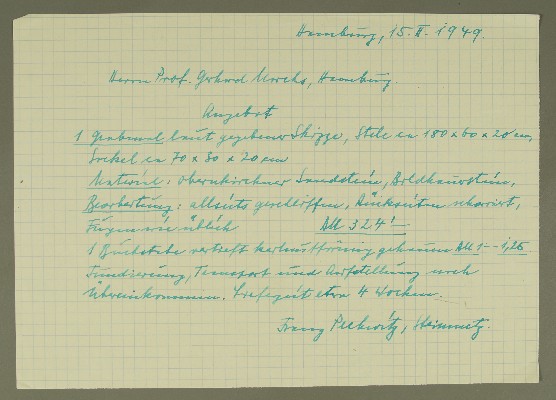 Hamburg, 15. II. 1949.
Herrn Prof. Gerhard Marcks, Hamburg.
Angebot
1 Grabmal laut gegebener Skizze, Stele ca 180 x 60 x 20 cm,
Sockel ca 70 x 30 x 20 cm
Material: Obernkirchner Sandstein, Bildhauerstein,
Bearbeitung: allseits geschliffen, scharriert,
Fugen wie üblich DM 324.-
1 Buchstabe vertieft keilförmig gehauen DM 1.- - 1,25
Fundierung, Transport und Aufstellung nach
Übereinkommen. Lieferzeit etwa 4 Wochen.
Franz Steinmetz.